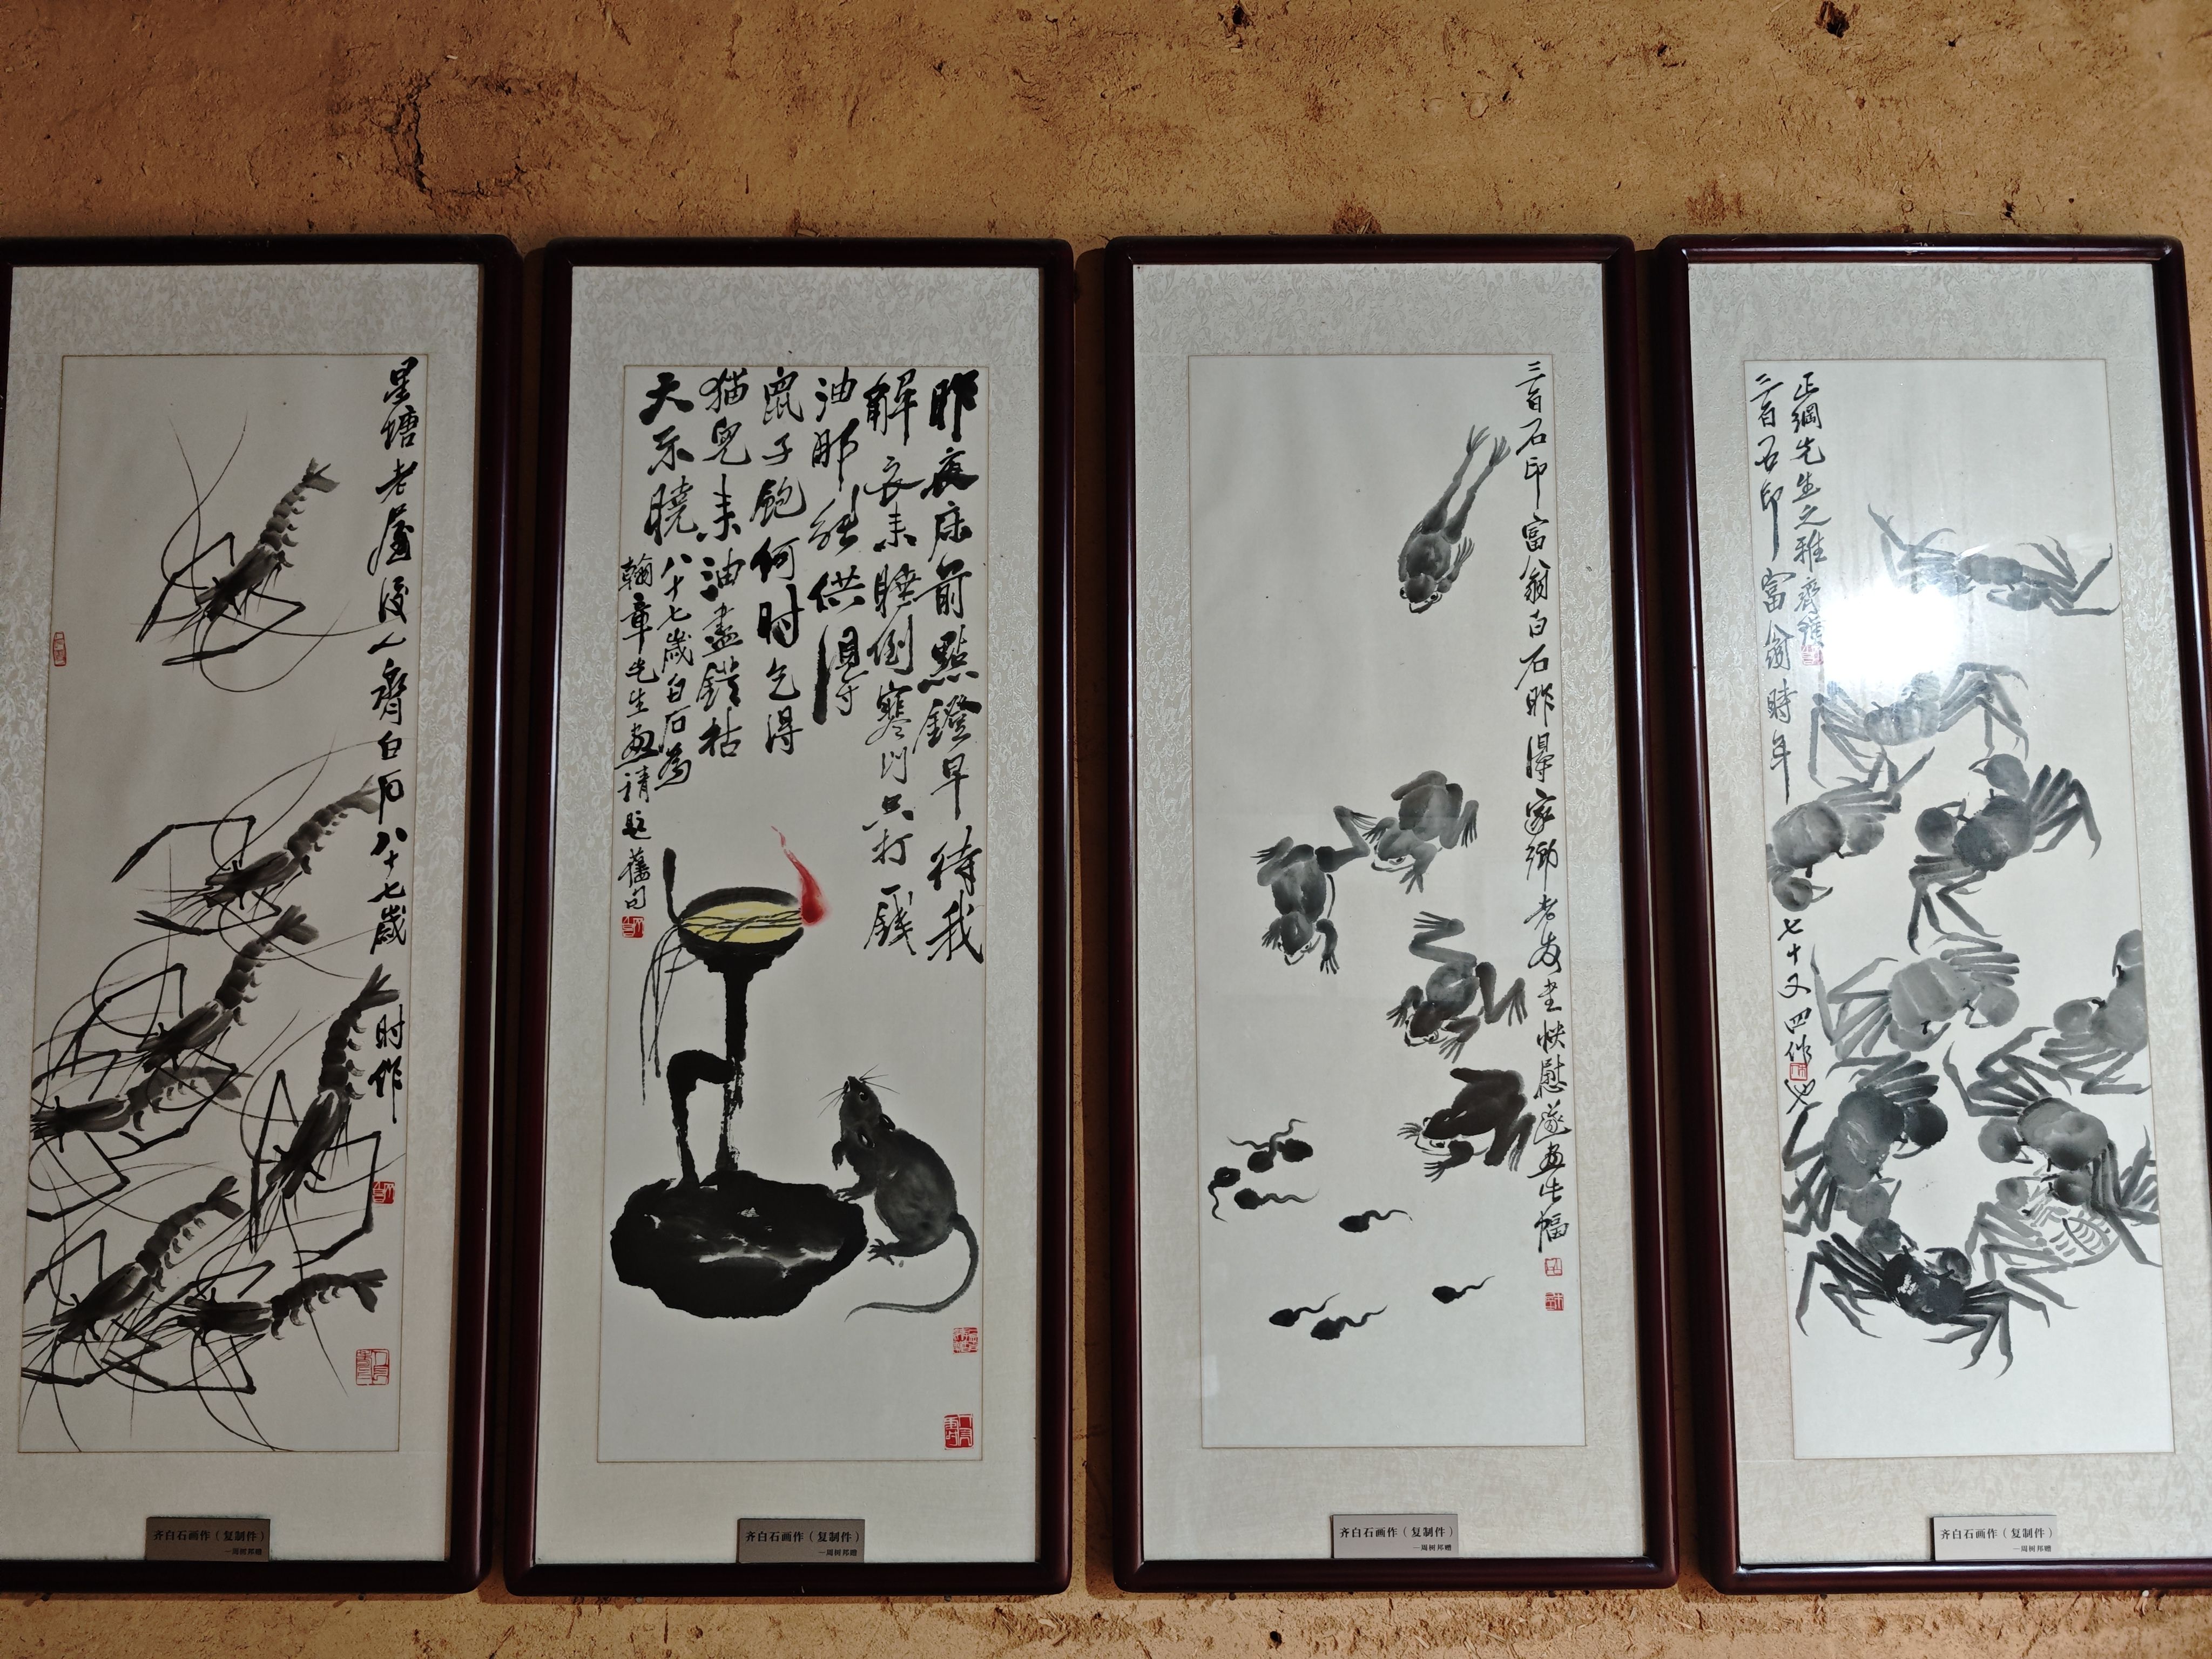 星塘老屋後人齊白石八十七歲时作
齐白石画作（复制件）
—周树邦赠
昨夜床前點鐙早待我
解衣来睡倒寒门只打一錢
油那能供得
鼠子飽何时乞得
猫兒来油盡鐙枯
天不曉
八十七歲白石為
翰章先生画請題舊句
齐白石画作（复制件）
—周树邦赠
三百石印富翁白石昨得家鄉老友书快慰遂画此幅
齐白石画作（复制件）
—周树邦赠
正綱先生之雅齊璜
三百石印富翁時年
七十又四作也
齐白石画作（复制件）
—周树邦赠